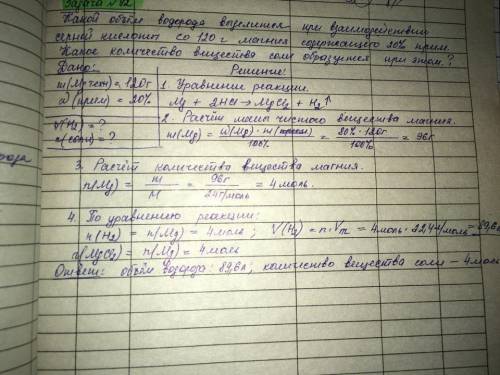 Задача №2
Какой объём водорода выделится при взаимодействии
серной кислоты со 120 г магния содержащего 20% прим.
Какое количество вещества соли образуется при этом?
Дано: Решение:
= 120г 1. Уравнение реакции.
ω(прим) = 20% Mg + 2HCl → MgCl2 + H2↑
2. Расчёт массы чистого вещества магния.
V(H2) = ? m(Mg) = ω(Mg) · m( ) / 100% = 80% · 120г / 100% = 96г
n(соли) = ?
3. Расчёт количества вещества магния.
n(Mg) = m / M = 96г / 24г/моль = 4 моль.
4. По уравнению реакции:
n(H2) = n(Mg) = 4 моль; V(H2) = n·Vm = 4моль · 22,4 л/моль = 89,6л
n(MgCl2) = n(Mg) = 4 моль
Ответ: объём водорода: 89,6л; количество вещества соли - 4 моль